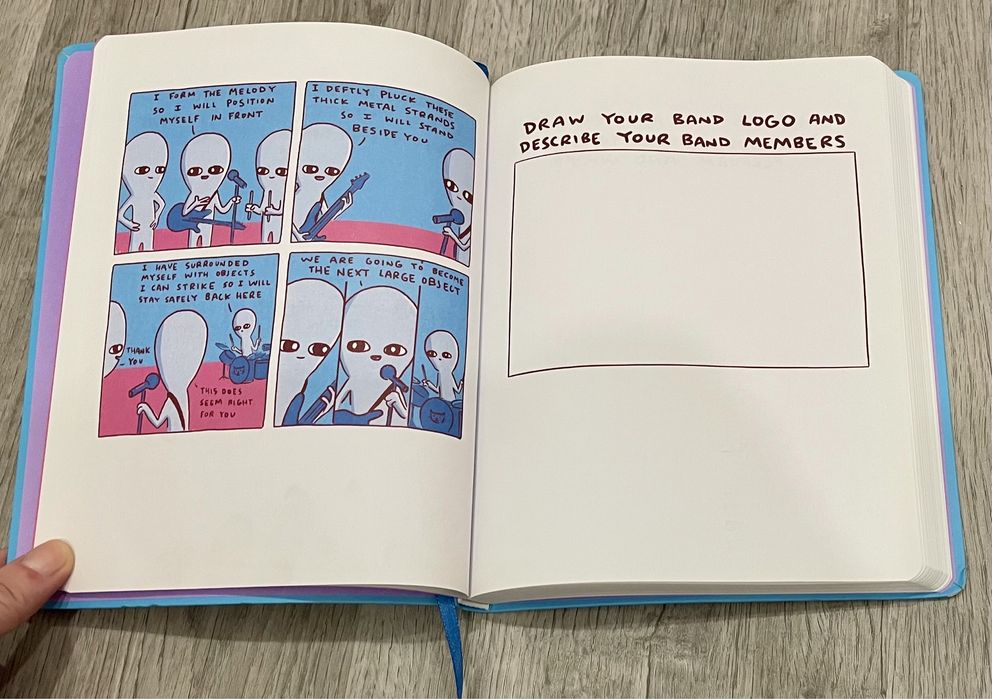 I FORM THE MELODY
SO I WILL POSITION
MYSELF IN FRONT
I DEFTLY PLUCK THESE
THICK METAL STRANDS
SO I WILL STAND
BESIDE YOU
I HAVE SURROUNDED
MYSELF WITH OBJECTS
I CAN STRIKE SO I WILL
STAY SAFELY BACK HERE
THANK
YOU
THIS DOES
SEEM RIGHT
FOR YOU
WE ARE GOING TO BECOME
THE NEXT LARGE OBJECT
DRAW YOUR BAND LOGO AND
DESCRIBE YOUR BAND MEMBERS